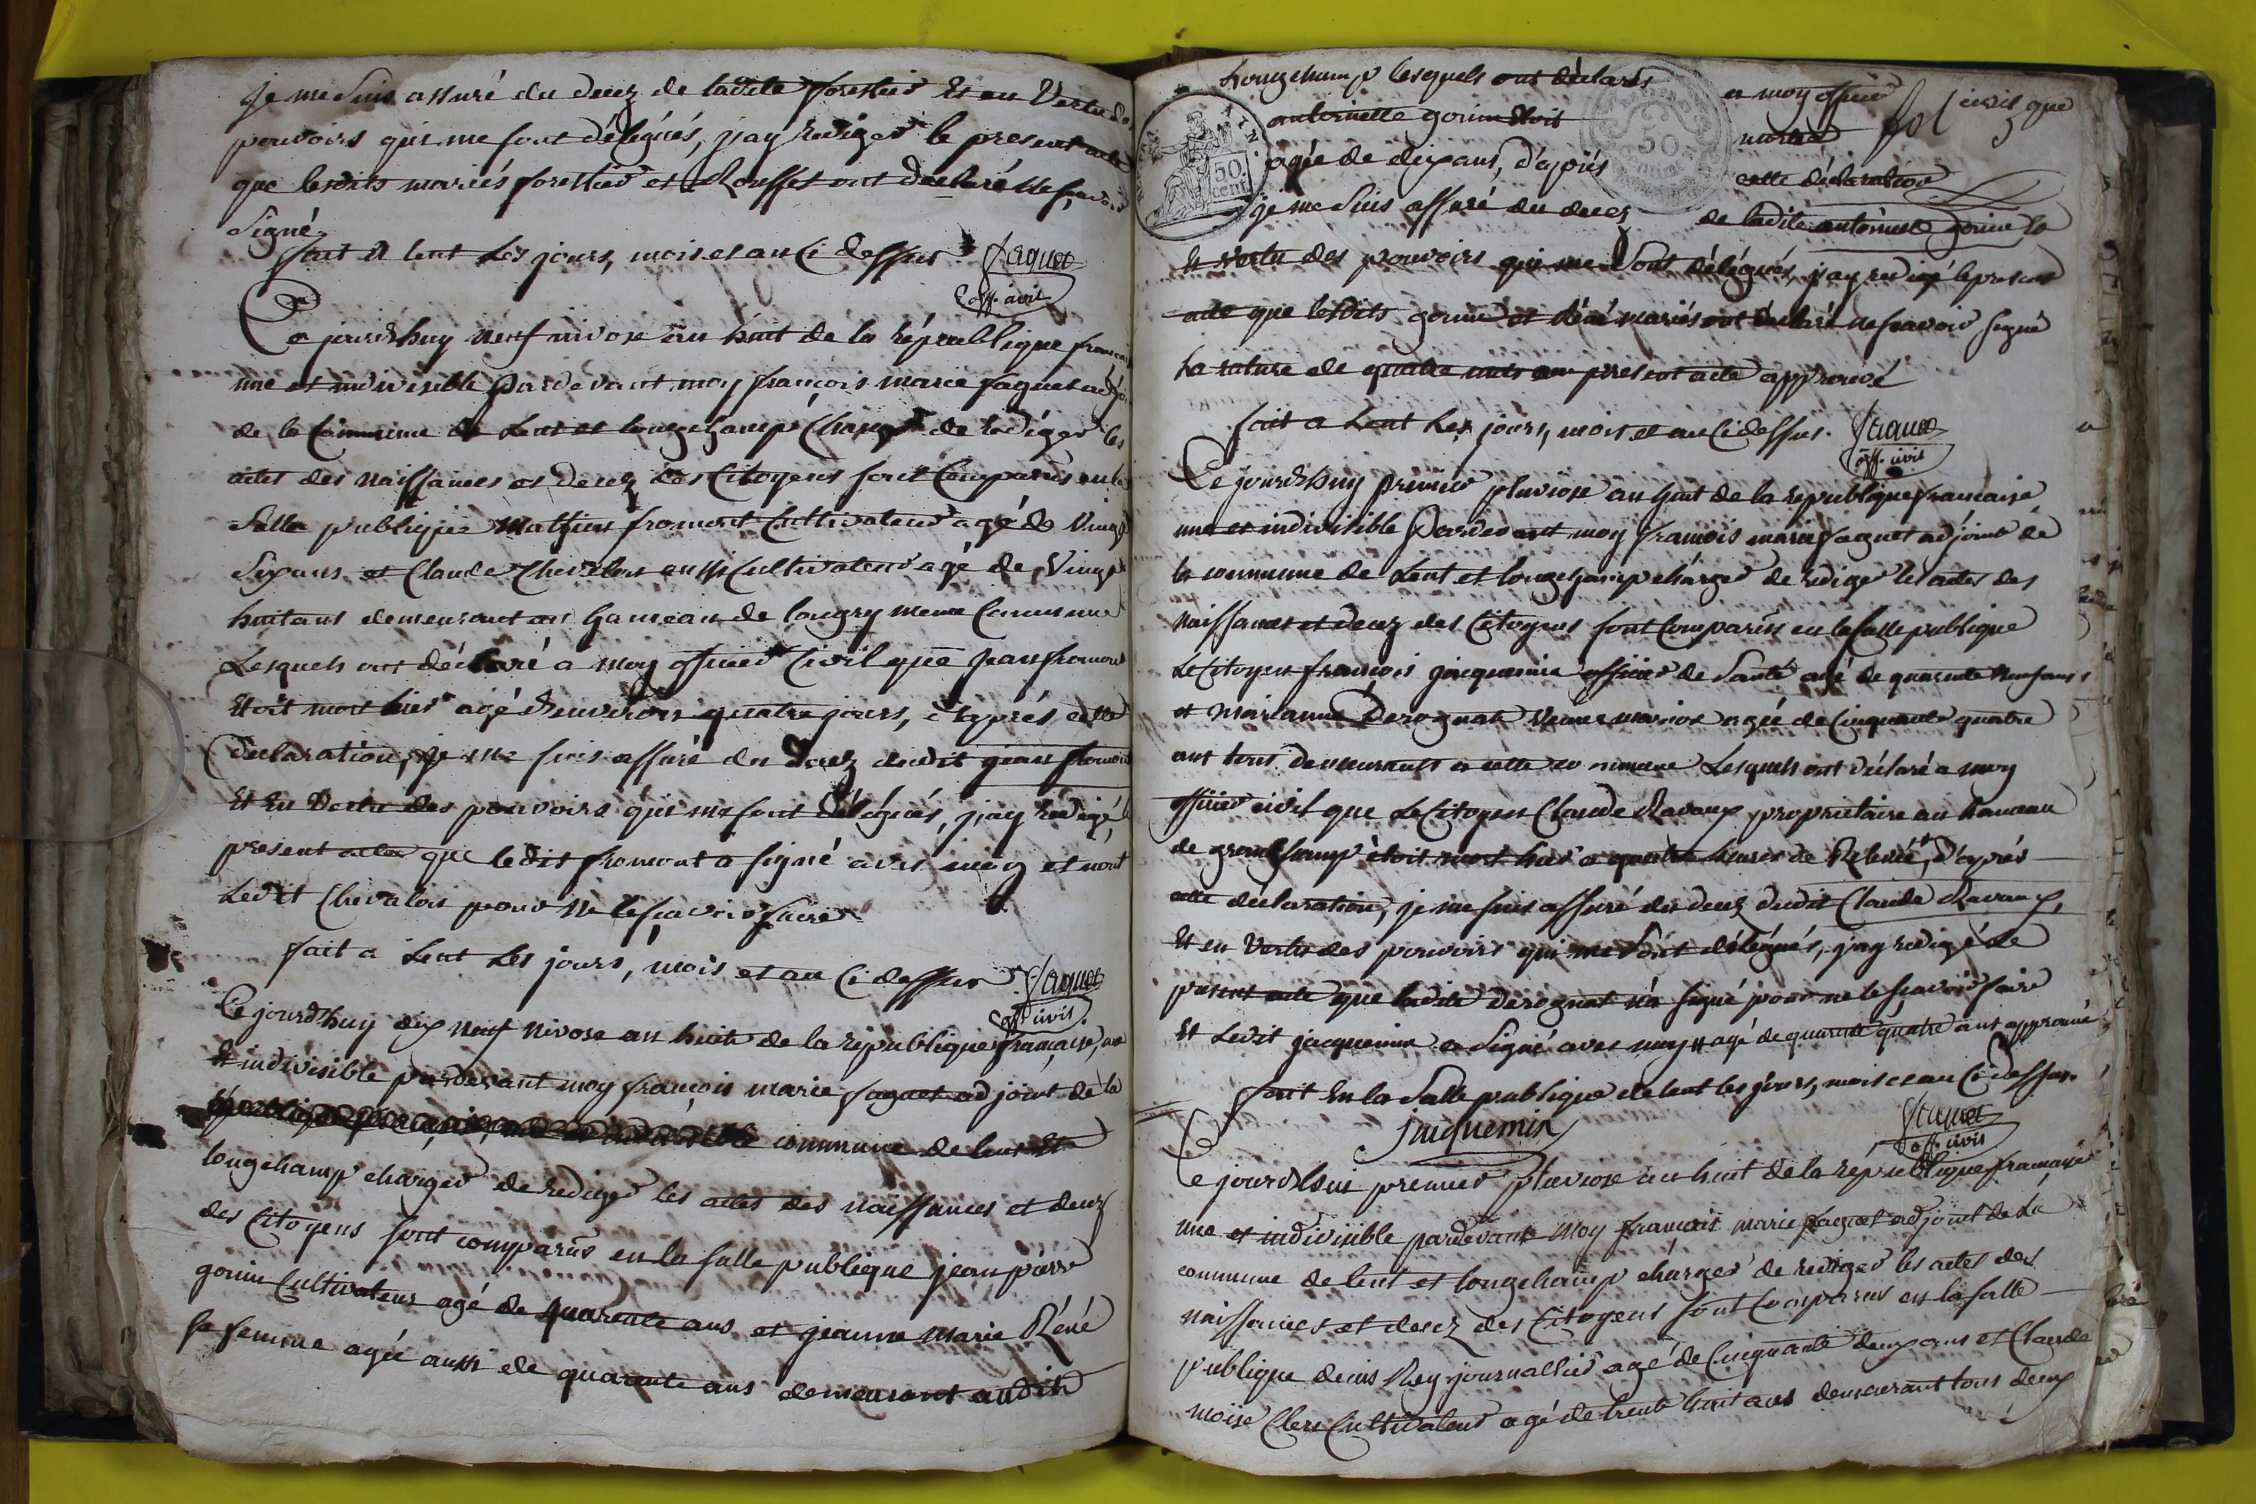 je me suis assuré du decez de ladite forestier Et en Vertu des
pouvoirs qui me sont délégués, j'ay rediger le present acte
que lesdits mariés forestier et Rousset ont declaré ne scavoir
Signé.
fait a lent Les jours, mois et an Ci dessus
faguet
off. civil
Ce jourd'huy neuf nivose an huit de la république francai
une et indivisible Pardevant moy françois marie faguet adjoint
de la Commune de Lent et longchamp Chargé de rédiger les
actes des naissances et decez des Citoyens sont Comparus en la
Salle publique Mathieu fromont Cultivateur agé de Vingt
Six ans et Claude Chevalon aussi Cultivateur agé de Vingt
huit ans demeurant au hameau de longry meme Commune
Lesquels ont déclaré a moy officier Civil que Jean fromont
Etoit mort hier agé d'environ quatre jours, d'après cette
déclaration, je me suis assuré du decez dudit jean fromont
Et En Vertu des pouvoirs qui me sont délégués, j'ay rédigé le
present acte que ledit fromont a signé avec moy et nont
Ledit Chevalon pour ne le scavoir faire
fait a Lent Les jours, mois et an Ci dessus
faguet
off. civil
Ce jourd'huy dix neuf nivose an huit de la république française, une
Et indivisible pardevant moy françois marie faguet adjoint de la
commune de lent Et
longchamp charger de rediger les actes des naissances et decez
des Citoyens sont comparus en la salle publique jean pierre
gonin Cultivateur agé de quarente ans et jeanne marie Réné
sa femme agée aussi de quarente ans demeurant audit
longchamp lesquels ont déclarés a moy officier civil que
fol
antoinette gonin Etoit morte
50 cent
50
agée de dix ans, d'après cette déclaration
je me suis assuré du decez de ladite antoinette gonin Et
En vertu des pouvoirs qui me Sont délégués, j'ay redigé le present
acte que lesdits gonin et Réné mariés ont déclaré ne scavoir signé
La rature de quatre mots au present acte approuvé
fait a Lent Les jours, mois et an Ci dessus.
faguet
off. civil
Ce jourd'huy premier pluviose an huit de la republique francaise
une et indivisible Pardevant moy françois marie faguet adjoint de
la commune de Lent et longchamp charger de rediger les actes des
naissances et decez des Citoyens sont Comparus en la salle publique
Le Citoyen francois jacquemin officier de Santé agé de quarente neuf ans
et marianne Derognat agée de Cinquante quatre
ans tous demeurants a cette commune Lesquels ont déclaré a moy
officier civil que Le Citoyen Claude Ravaux propriétaire au hameau
de grand champ étoit mort hier a quatre heures de Relevée, d'après
cette déclaration, je me suis assuré du decez dudit Claude Ravaux,
Et en Vertu des pouvoirs qui me Sont délégués, j'ay redigé Le
present acte que ladite Derognat n'a signé pour ne le scavoir faire
Et Ledit jacquemin a Signé avec moy agé de quarente quatre ans approuvé
fait En la Salle publique de lent les jours, mois et an Ci dessus.
Jacquemin
faguet
off. civil
Ce jourd'hui premier pluviose an huit de la république française
une et indivisible pardevant moy françois marie faguet adjoint de La
commune de lent et longchamp charger de rediger les actes des
naissances et decez des Citoyens sont Comparus en la salle
publique denis Rey journallier agé de Cinquante deux ans et Claude
moïse Clerc Cultivateur agé de trente huit ans demeurant tous deux